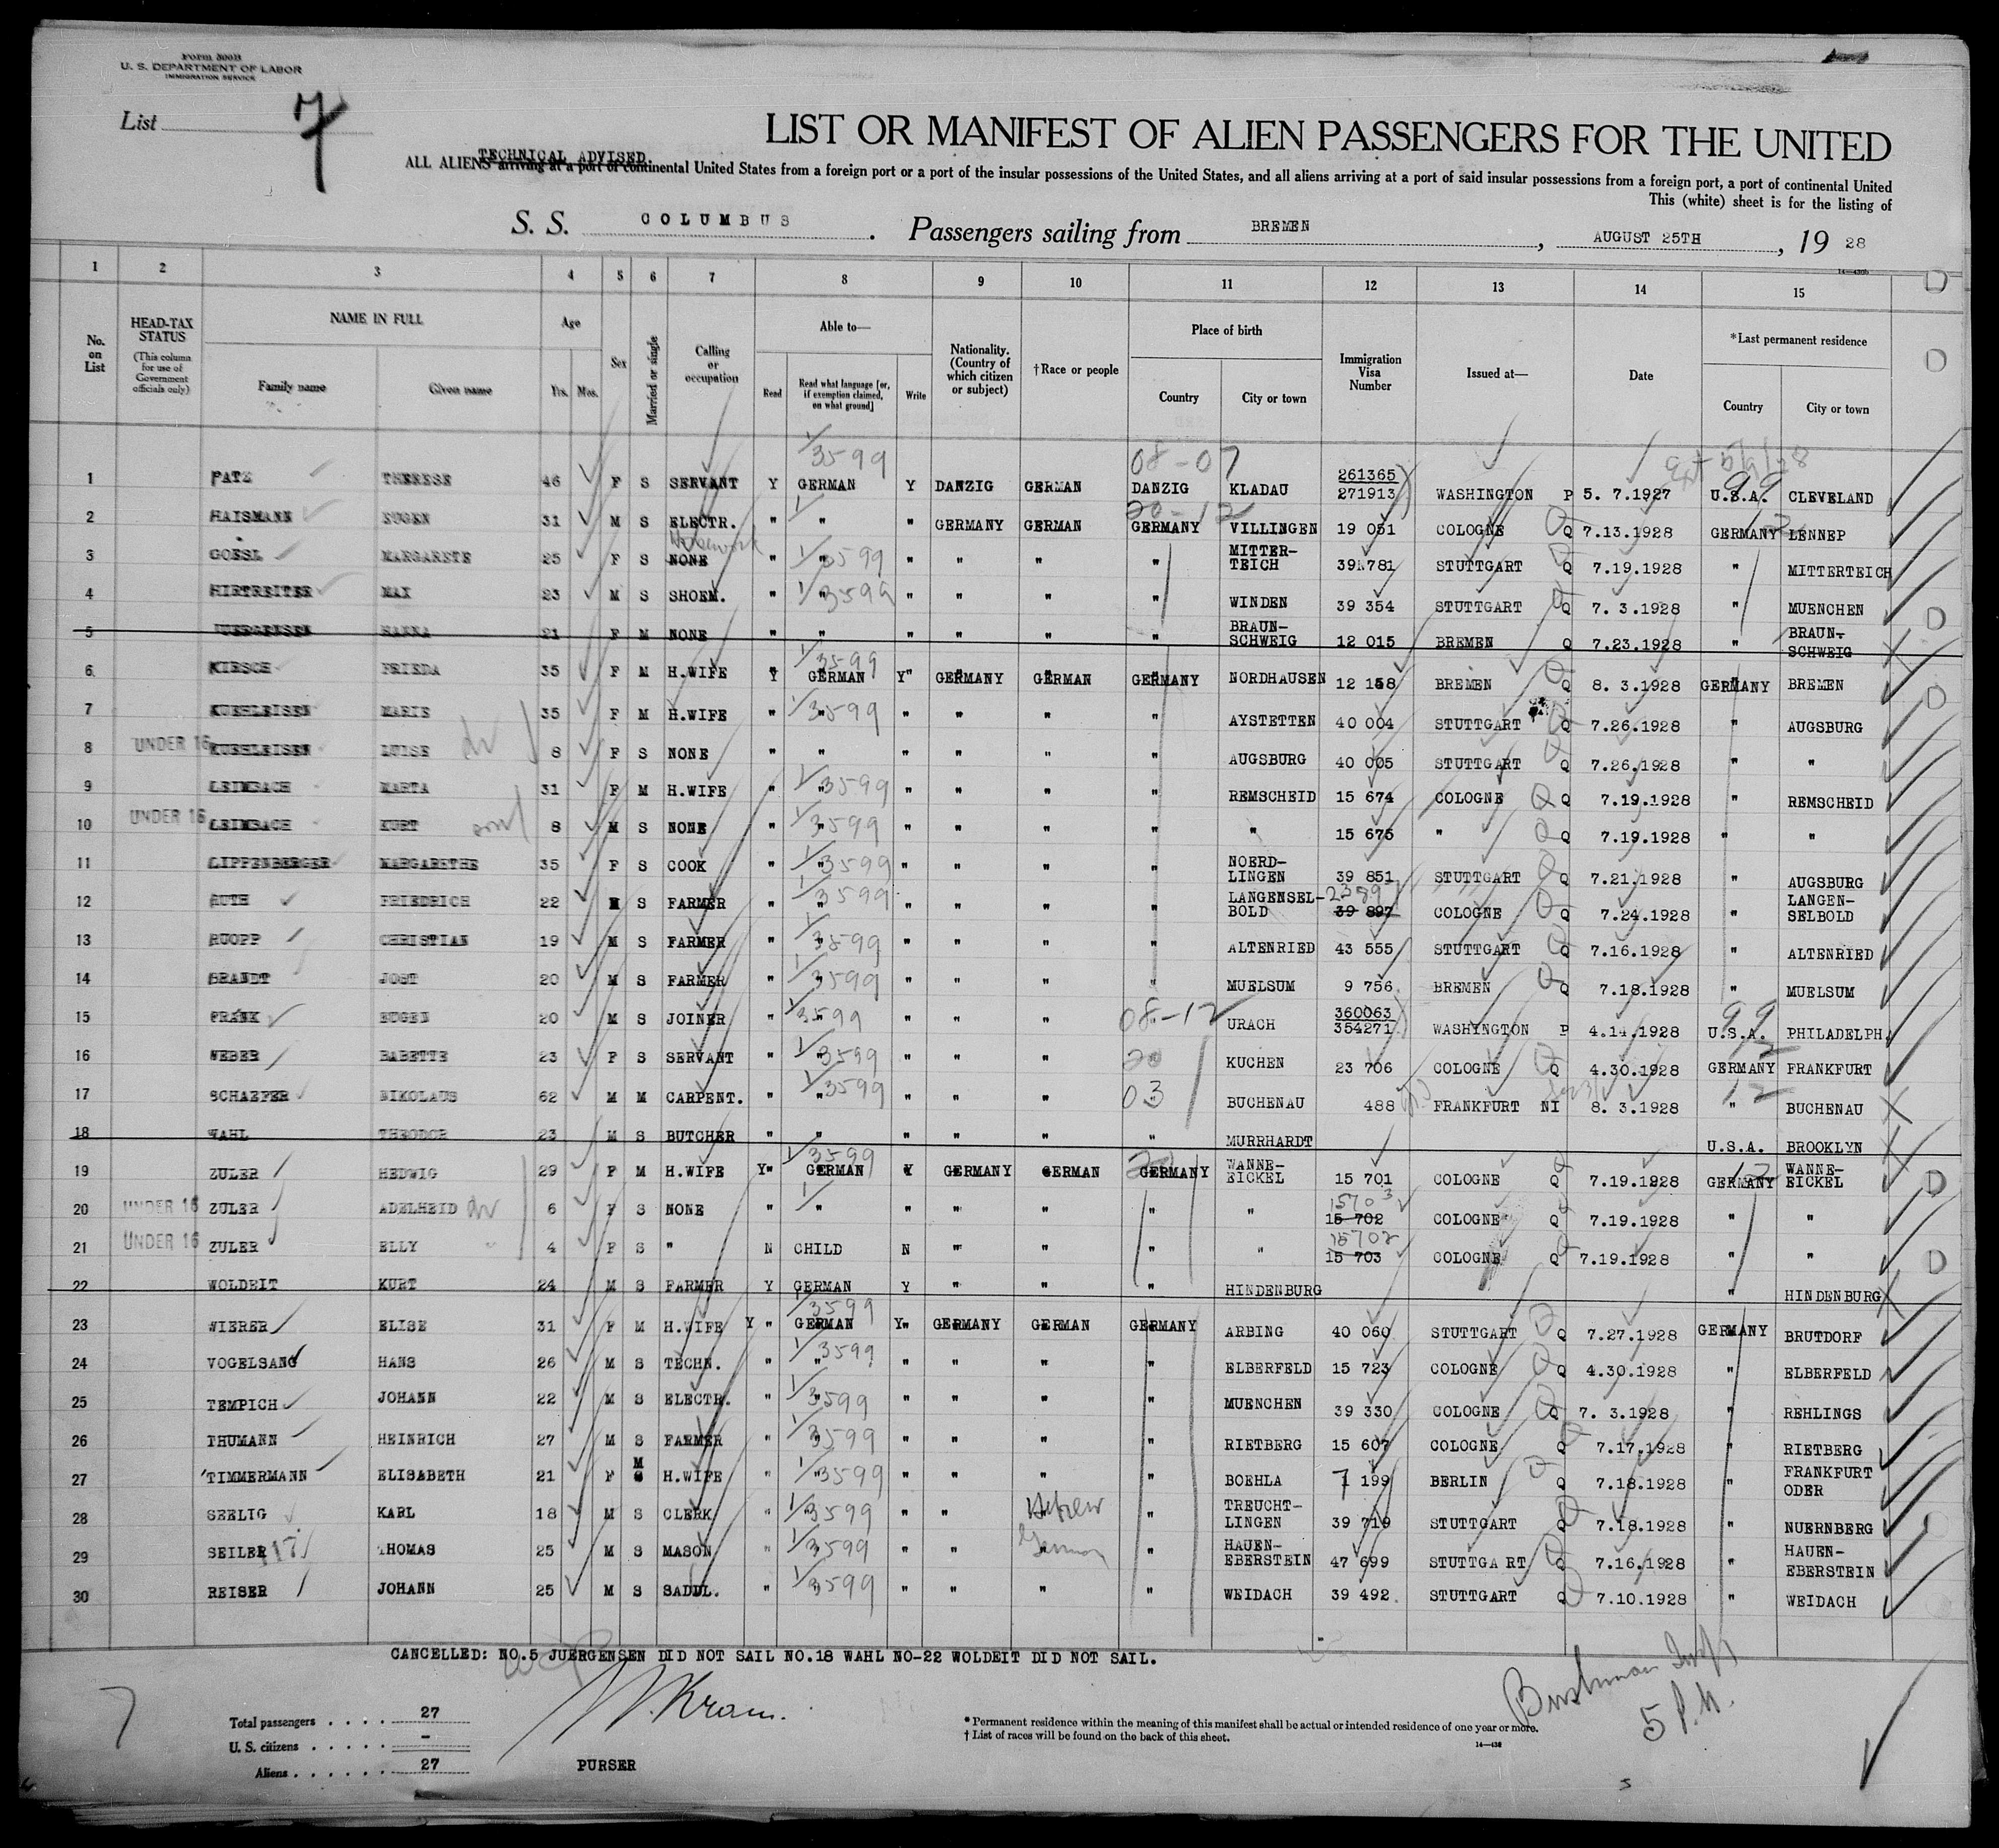 Form 500B
U. S. DEPARTMENT OF LABOR
IMMIGRATION SERVICE
List 7
LIST OR MANIFEST OF ALIEN PASSENGERS FOR THE UNITED
TECHNICAL ADVISED
ALL ALIENS arriving at a port of continental United States from a foreign port or a port of the insular possessions of the United States, and all aliens arriving at a port of said insular possessions from a foreign port, a port of continental United
This (white) sheet is for the listing of
S. S. COLUMBUS. Passengers sailing from BREMEN, AUGUST 25TH, 19 28
14—430b
1 2 3 4 5 6 7 8 9 10 11 12 13 14 15
No. on List
HEAD-TAX STATUS (This column for use of Government officials only)
NAME IN FULL Family name Given name
Age Yrs. Mos.
Sex
Married or single
Calling or occupation
Able to— Read Read what language [or, if exemption claimed, on what ground] Write
Nationality. (Country of which citizen or subject)
†Race or people
Place of birth Country City or town
Immigration Visa Number
Issued at—
Date
*Last permanent residence Country City or town
1/3599 08-07
1 PATZ THERESE 46 F S SERVANT Y GERMAN Y DANZIG GERMAN DANZIG KLADAU 261365 271913 WASHINGTON P 5. 7.1927 U.S.A. 99 CLEVELAND
2 HAISMANN EUGEN 31 M S ELECTR. " " " GERMANY GERMAN GERMANY 20-12 VILLINGEN 19 051 COLOGNE Q 7.13.1928 GERMANY 12 LENNEP
3 GOESL MARGARETE 25 F S NONE Housework " " 1/3599 " " " " MITTER-TEICH 39 781 STUTTGART Q 7.19.1928 " MITTERTEICH
4 HIRTREITER MAX 23 M S SHOEM. " " 1/3599 " " " " WINDEN 39 354 STUTTGART Q 7. 3.1928 " MUENCHEN
5 JUERGENSEN HANNA 21 F M NONE " " " " " " BRAUN-SCHWEIG 12 015 BREMEN Q 7.23.1928 " BRAUN-SCHWEIG
6 KIRSCH FRIEDA 35 F M H.WIFE Y GERMAN 1/3599 Y" GERMANY GERMAN GERMANY NORDHAUSEN 12 158 BREMEN Q 8. 3.1928 GERMANY BREMEN
7 KUEHLEISEN MARIE 35 F M H.WIFE " " 1/3599 " " " " AYSTETTEN 40 004 STUTTGART Q 7.26.1928 " AUGSBURG
8 UNDER 16 KUEHLEISEN LUISE 8 F S NONE " " " " " " AUGSBURG 40 005 STUTTGART Q 7.26.1928 " "
9 LEIMBACH MARTA 31 F M H.WIFE " " 1/3599 " " " " REMSCHEID 15 674 COLOGNE Q 7.19.1928 " REMSCHEID
10 UNDER 16 LEIMBACH KURT son 8 M S NONE " " 1/3599 " " " " " 15 675 " Q 7.19.1928 " "
11 LIPPENBERGER MARGARETHE 35 F S COOK " " 1/3599 " " " " NOERD-LINGEN 39 851 STUTTGART Q 7.21.1928 " AUGSBURG
12 RUTH FRIEDRICH 22 M S FARMER " " 1/3599 " " " " LANGENSEL-BOLD 39 897 COLOGNE Q 7.24.1928 " LANGEN-SELBOLD
13 RUOPP CHRISTIAN 19 M S FARMER " " 1/3599 " " " " ALTENRIED 43 555 STUTTGART Q 7.16.1928 " ALTENRIED
14 BRANDT JOST 20 M S FARMER " " 1/3599 " " " " MUELSUM 9 756 BREMEN Q 7.18.1928 " MUELSUM
15 FRANK EUGEN 20 M S JOINER " " 1/3599 " " " 08-12 URACH 360063 354271 WASHINGTON P 4.14.1928 U.S.A. 99 PHILADELPH.
16 WEBER BABETTE 23 F S SERVANT " " 1/3599 " " " 20 KUCHEN 23 706 COLOGNE Q 4.30.1928 GERMANY 12 FRANKFURT
17 SCHAEFER NIKOLAUS 62 M M CARPENT. " " 1/3599 " " " 03 BUCHENAU 488 FRANKFURT NI 8. 3.1928 " 12 BUCHENAU
18 WAHL THEODOR 23 M S BUTCHER " " " " " " MURRHARDT U.S.A. BROOKLYN
19 ZULER HEDWIG 29 F M H.WIFE Y" GERMAN 1/3599 Y GERMANY GERMAN GERMANY 20 WANNE-EICKEL 15 701 COLOGNE Q 7.19.1928 GERMANY 12 WANNE-EICKEL
20 UNDER 16 ZULER ADELHEID 6 F S NONE " " " " " " " 15703 15 702 COLOGNE Q 7.19.1928 " "
21 UNDER 16 ZULER ELLY 4 F S " N CHILD N " " " " 15702 15 703 COLOGNE Q 7.19.1928 " "
22 WOLDEIT KURT 24 M S FARMER Y GERMAN Y " " " HINDENBURG " HINDENBURG
23 WIERER ELISE 31 F M H.WIFE Y " GERMAN 1/3599 Y" GERMANY GERMAN GERMANY ARBING 40 060 STUTTGART Q 7.27.1928 GERMANY BRUTDORF
24 VOGELSANG HANS 26 M S TECHN. " " 1/3599 " " " " ELBERFELD 15 723 COLOGNE Q 4.30.1928 " ELBERFELD
25 TEMPICH JOHANN 22 M S ELECTR. " " 1/3599 " " " " MUENCHEN 39 330 COLOGNE Q 7. 3.1928 " REHLINGS
26 THUMANN HEINRICH 27 M S FARMER " " 1/3599 " " " " RIETBERG 15 607 COLOGNE Q 7.17.1928 " RIETBERG
27 TIMMERMANN ELISABETH 21 F M H.WIFE " " 1/3599 " " " " BOEHLA 7 199 BERLIN Q 7.18.1928 " FRANKFURT ODER
28 SEELIG KARL 18 M S CLERK " " 1/3599 " " Hebrew " TREUCHT-LINGEN 39 719 STUTTGART Q 7.18.1928 " NUERNBERG
29 SEILER THOMAS 25 M S MASON " " 1/3599 " " German " HAUEN-EBERSTEIN 47 699 STUTTGART Q 7.16.1928 " HAUEN-EBERSTEIN
30 REISER JOHANN 25 M S SADDL. " " 1/3599 " " " " WEIDACH 39 492 STUTTGART Q 7.10.1928 " WEIDACH
CANCELLED: NO.5 JUERGENSEN DID NOT SAIL NO.18 WAHL NO-22 WOLDEIT DID NOT SAIL.
Total passengers . . . . 27
U. S. citizens . . . . . -
Aliens . . . . . . 27
PURSER
* Permanent residence within the meaning of this manifest shall be actual or intended residence of one year or more.
† List of races will be found on the back of this sheet.
14—430
5 P.M.